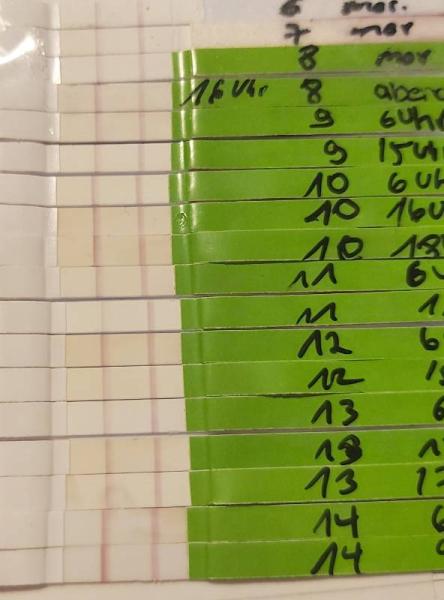 6 mor.
7 mor
8 mor
16 Uhr 8 abend
9 6 Uhr
9 15 Uhr
10 6 Uh
10 16 U
10 18
11 6 U
11 1
12 6
12
13 6
13 1
13 1
14 6
14